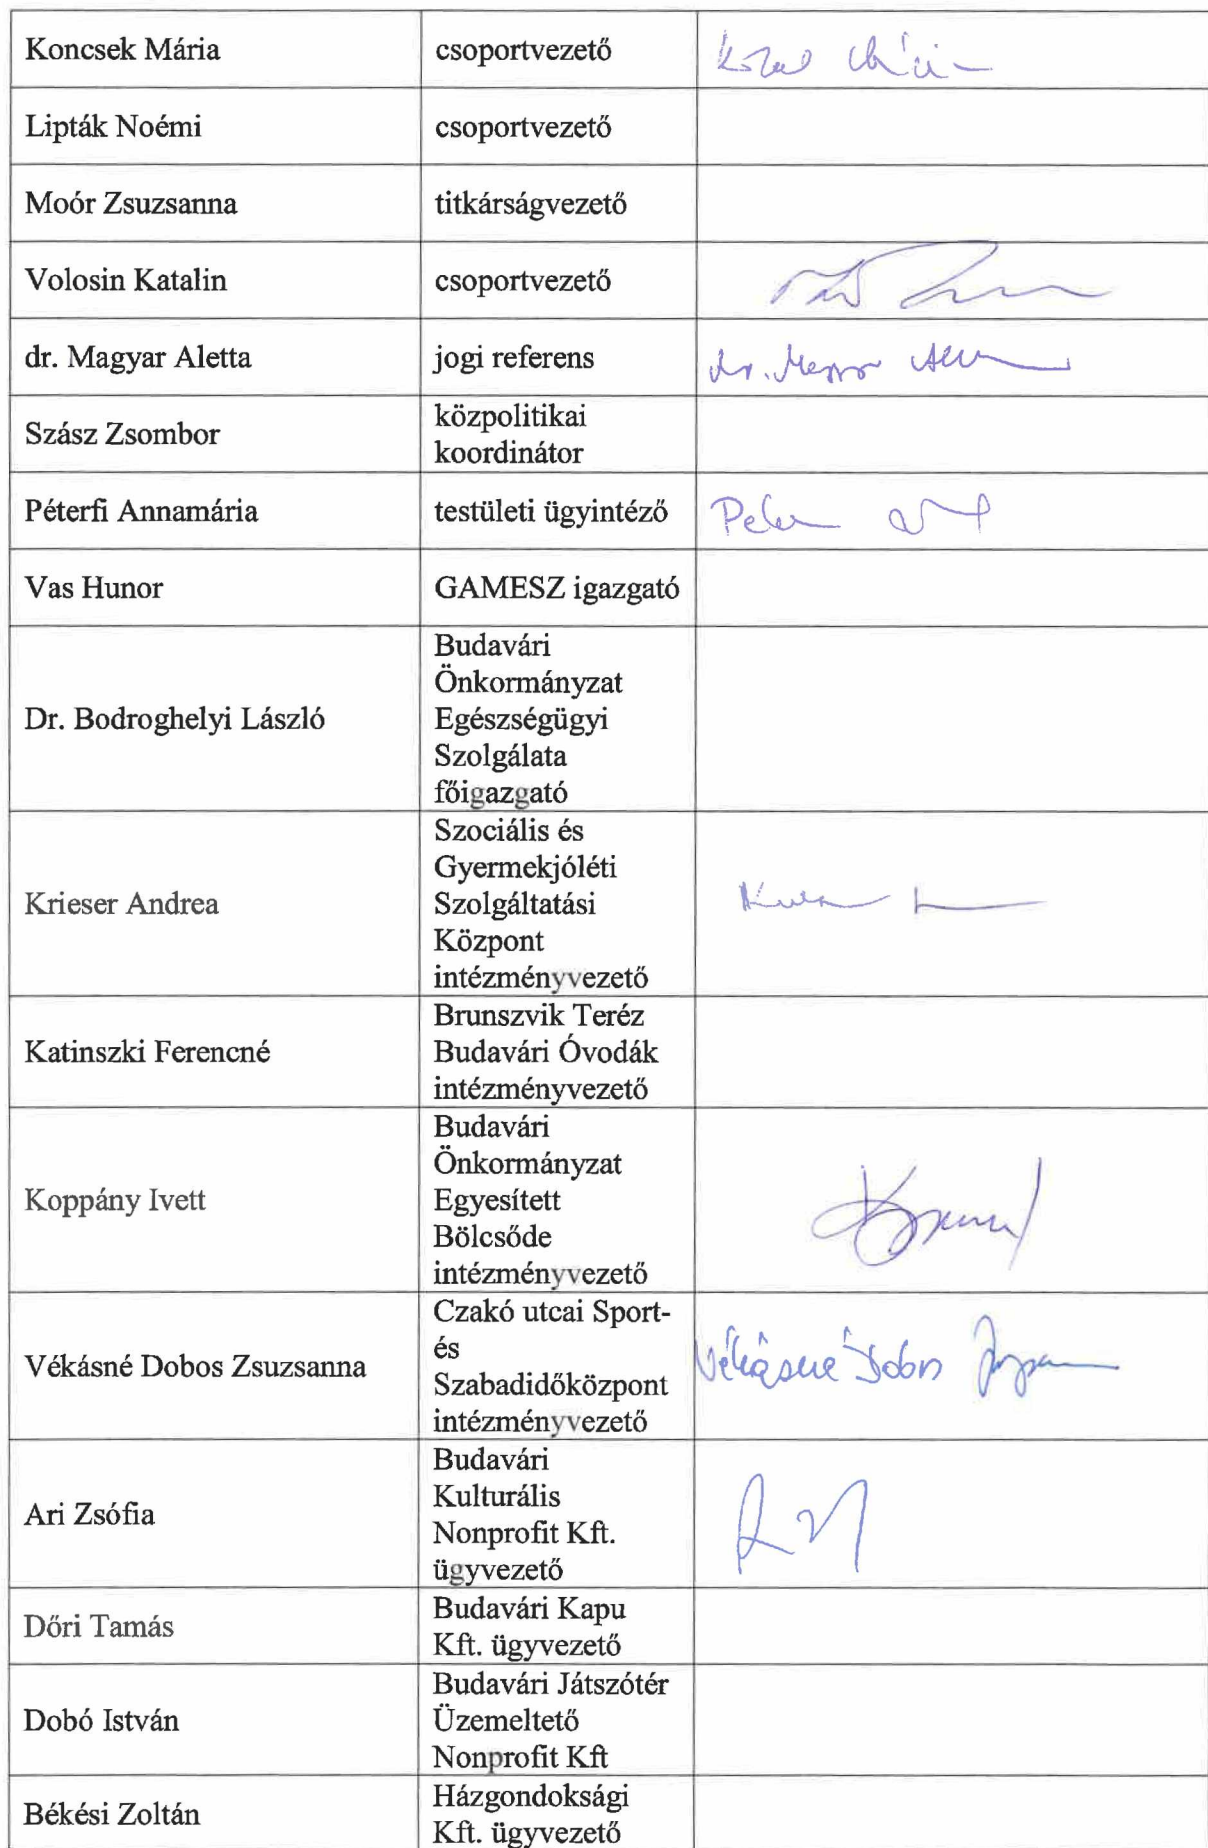 Koncsek Mária
csoportvezető
Lipták Noémi
csoportvezető
Moór Zsuzsanna
titkárságvezető
Volosin Katalin
csoportvezető
dr. Magyar Aletta
jogi referens
Szász Zsombor
közpolitikai
koordinátor
Péterfi Annamária
testületi ügyintéző
Vas Hunor
GAMESZ igazgató
Dr. Bodroghelyi László
Budavári
Önkormányzat
Egészségügyi
Szolgálata
főigazgató
Krieser Andrea
Szociális és
Gyermekjóléti
Szolgáltatási
Központ
intézményvezető
Katinszki Ferencné
Brunszvik Teréz
Budavári Óvodák
intézményvezető
Koppány Ivett
Budavári
Önkormányzat
Egyesített
Bölcsőde
intézményvezető
Vékásné Dobos Zsuzsanna
Czakó utcai Sport-
és
Szabadidőközpont
intézményvezető
Vékásné Dobos
Ari Zsófia
Budavári
Kulturális
Nonprofit Kft.
ügyvezető
Dőri Tamás
Budavári Kapu
Kft. ügyvezető
Dobó István
Budavári Játszótér
Üzemeltető
Nonprofit Kft
Békési Zoltán
Házgondoksági
Kft. ügyvezető